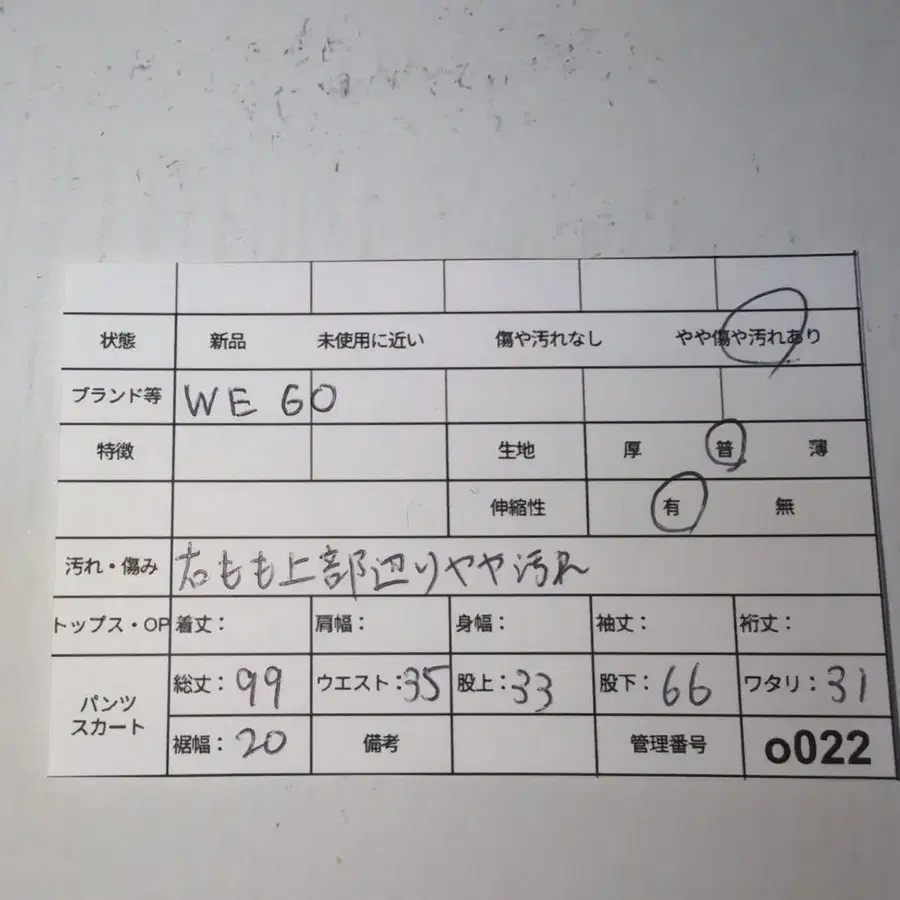 状態 新品 未使用に近い 傷や汚れなし やや傷や汚れあり
ブランド等 WE GO
特徴 生地 厚 普 薄
伸縮性 有 無
汚れ・傷み 右もも上部辺りやや汚れ
トップス・OP 着丈: 肩幅: 身幅: 袖丈: 裄丈:
パンツ
スカート
総丈:99 ウエスト:35 股上:33 股下:66 ワタリ:31
裾幅:20 備考 管理番号 o022